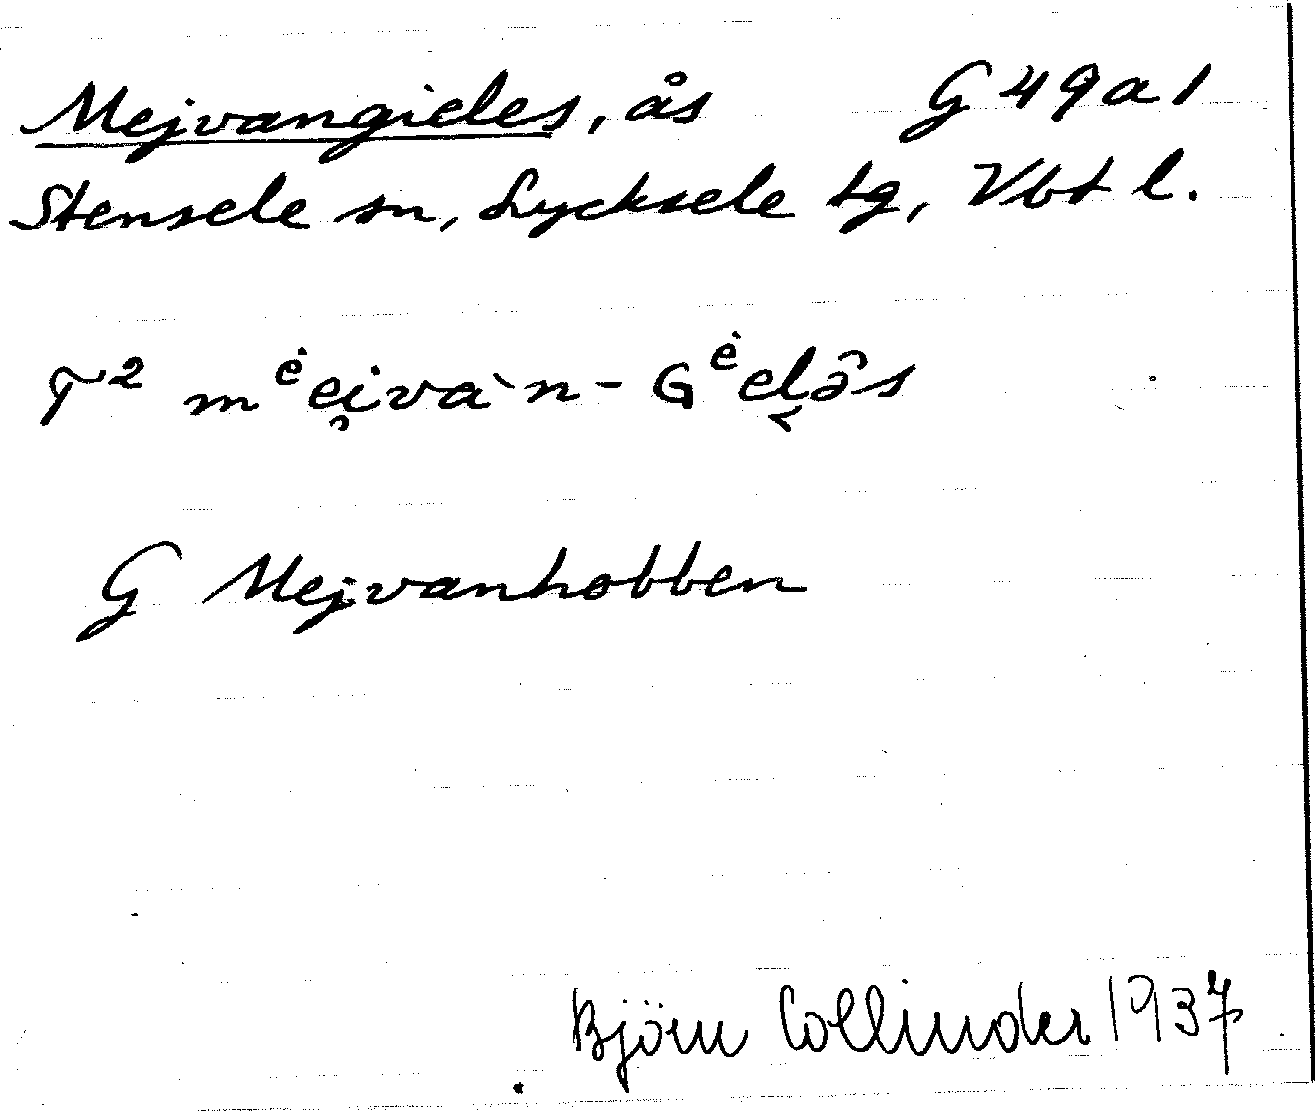 Mejvangieles, ås G 49 a 1
Stensele sn, Lycksele tg, Vbt l.
T² mᵉ̇ei̯vàn-Gᵉ̇el̬ə̑s
G Mejvanhobben
Björn Collinder 1937